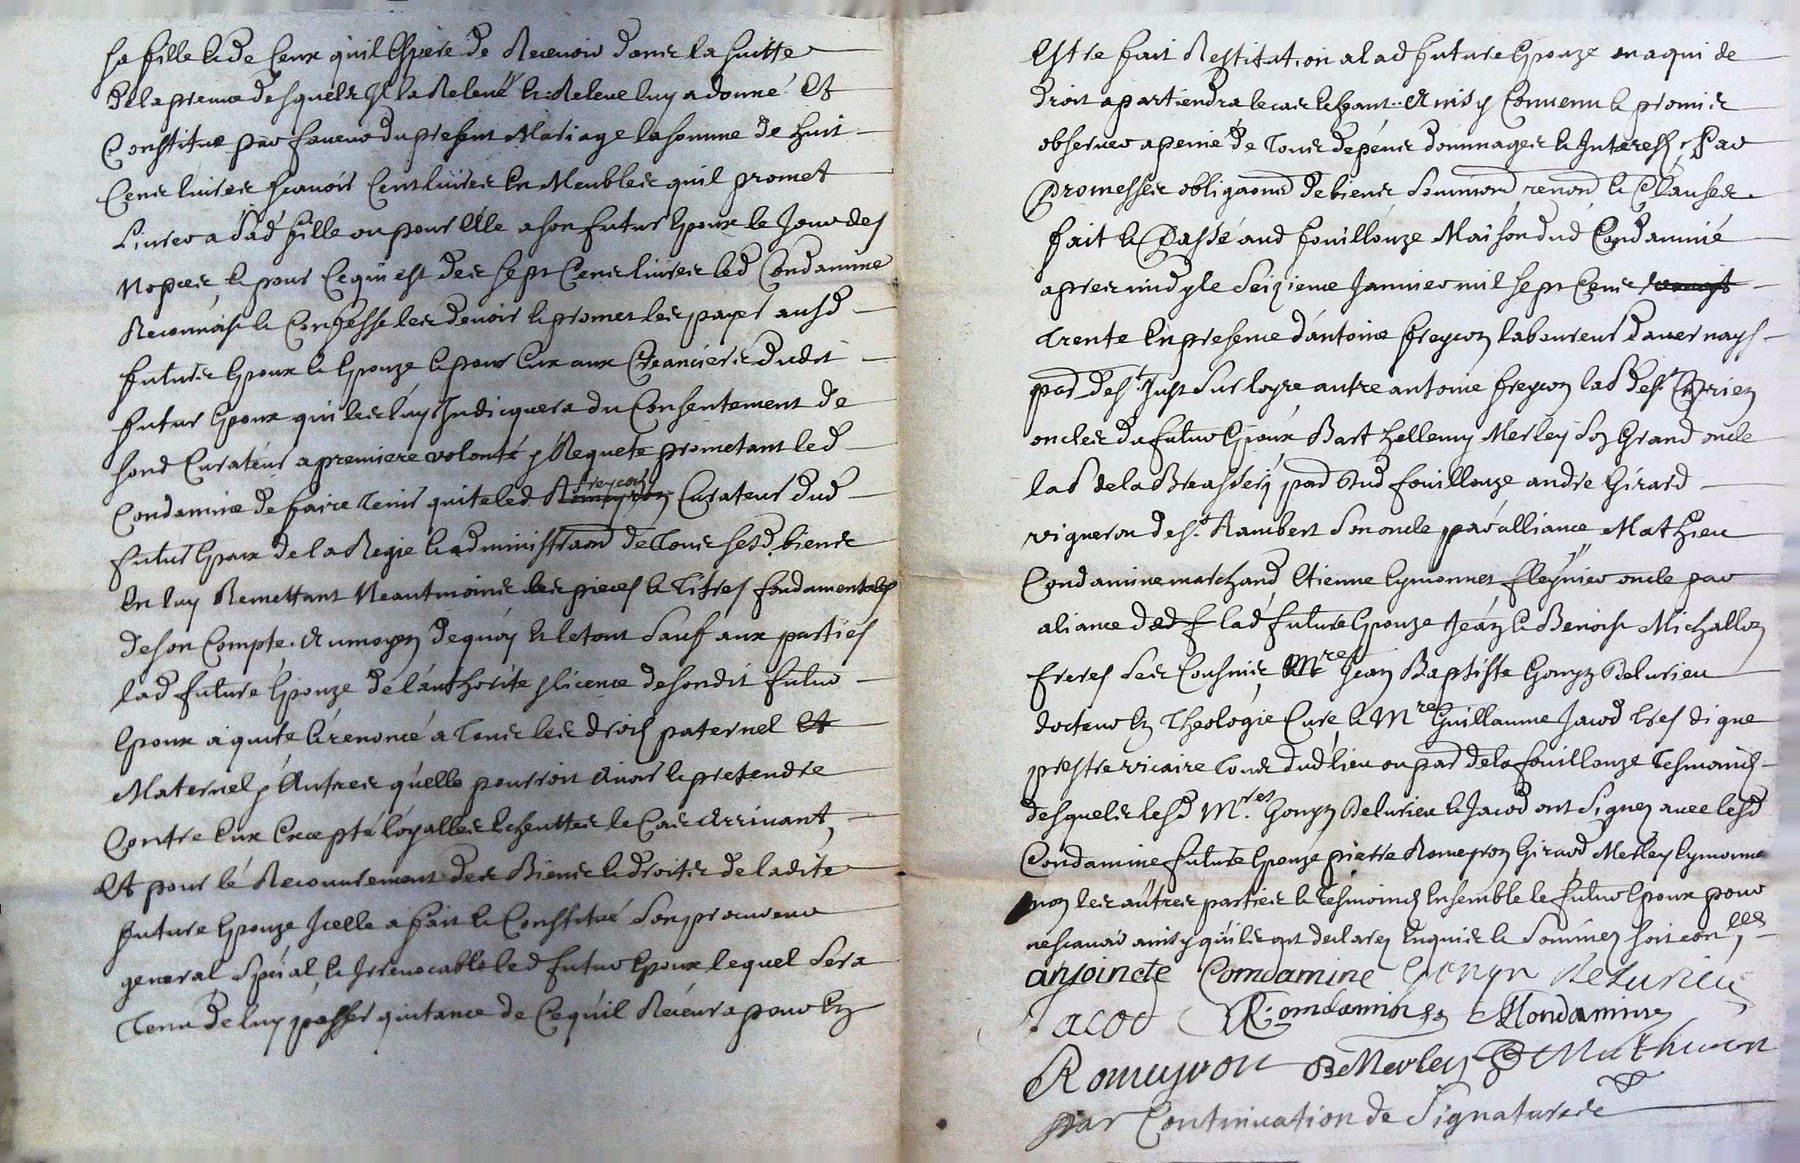 sa fille & de ceux qu'il espere de Recevoir dans la suitte
de la preuve desquels Il la Relevé & Releve luy a donné Et
Constitue par faveur du present Mariage la somme de huit
Cens livres scavoir Cent livres En Meubles qu'il promet
Livrer a sad fille ou pour Elle a son futur Epoux le Jour des
Nopces, & pour Ce qui est des sept Cens livres led Condamine
Reconnoist & Confesse les devoir & promet les payer ausd
futurs Epoux & Epouze & pour Eux aux Creanciers dudit
futur Epoux qui les luy Indicquera du Consentement de
sond Curateur a premiere volonté & Requete prometant led
Condamine de faire tenir quite led Romeyron freycon Curateur dud
futur Epoux de la Regie & administraon de tous sesd biens
En luy Remettant Neantmoins les pieces & Titres fondamentales
de son Compte. Au moyen de quoy & le tout Sauf aux parties
lad future Epouze de l'authorité & licence de sondit futur
Epoux a quité & renoncé a tous les droits paternel Et
Maternel & Autres qu'elle pourroit Avoir & pretendre
Contre Eux Excepté loyalles Echeuttes le Cas Arrivant,
Et pour le Recouvrement des Biens & droits de la dite
future Epouze Icelle a fait & Constitué Son procureur
general, Speial, & Irrevocable led futur Epoux lequel Sera
Tenu de luy passer quitance de Ce qu'il Recevra pour En
Estre fait Restitution a lad future Epouze ou a qui de
droit apartiendra le cas Echeant. Ainsy Convenu & promis
observer a peine de Tous depens dommages & Interests, Par
Promesses obligaons de biens Soumions renons & Clauses
fait & Passé aud fouillouze Maison dud Condamine
apres midy le Seizieme Janvier mil sept Cens vingt
Trente En presence d'antoine freycon laboureur d'avernays
par de St Just sur loyre autre antoine freycon lab de St Cyprien
oncles du futur Epoux Barthellemy Merley Son Grand oncle
lab de la Brassery par dud fouillouze andre Girard
vigneron de St Rambert Son oncle par alliance Mathieu
Condamine marchand, Etienne Eymonnet fleynier oncle par
aliance ded f lad future Epouze Jean & Benoist Michallon
freres Ses Cousins Mres Jean Baptiste Gonyn Delurieu
docteur En Theologie Curé & Mre Guillaume Jacod tres digne
prestre vicaire Tous dud lieu ou par de la fouillouze Tesmoins
desquels lesd Mres Gonyn Delurieu & Jacod ont Signez avec lesd
Condamine future Epouze pierre Romeyron Girard Merley Eymonnet
non les autres parties & tesmoins Ensemble le futur Epoux pour
ne scavoir ainsy qu'ils ont declarez Enquis & Sommez soit conlléé
anjoincte Condamine Gonyn Delurieu
Jacod Condamin Condamine
Romeyron B Merley Mathieu
par Continuation de Signatures